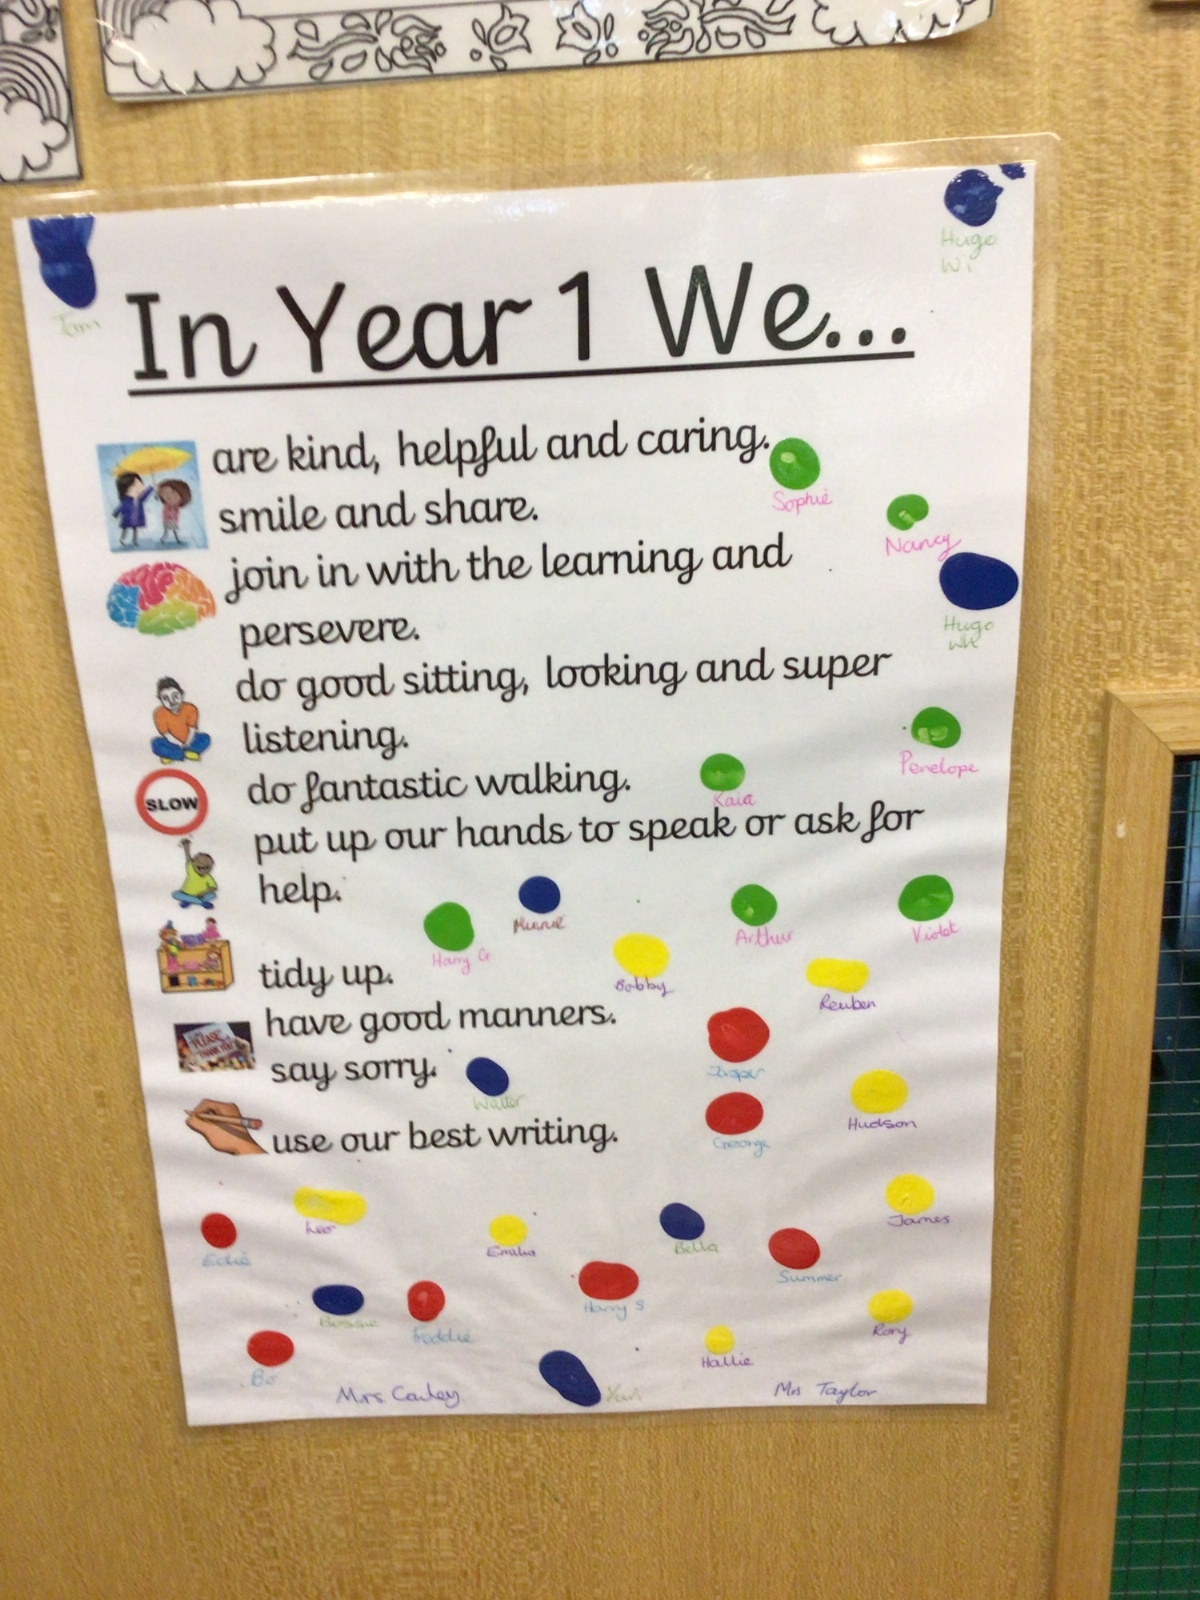 Hugo
Wi
In Year 1 We...
are kind, helpful and caring.
Sophie
smile and share.
Nancy
join in with the learning and
persevere.
Hugo
Wh
do good sitting, looking and super
listening.
Penelope
do fantastic walking.
Kaia
SLOW
put up our hands to speak or ask for
help.
Harry G
Arthur
Violet
tidy up.
Bobby
Reuben
have good manners.
PLEASE
THANK YOU
say sorry.
Jasper
Walter
Hudson
George
use our best writing.
Leo
James
Edie
Emilia
Bella
Summer
Bessie
Freddie
Harry S
Rory
Hallie
Bo
Mrs Taylor